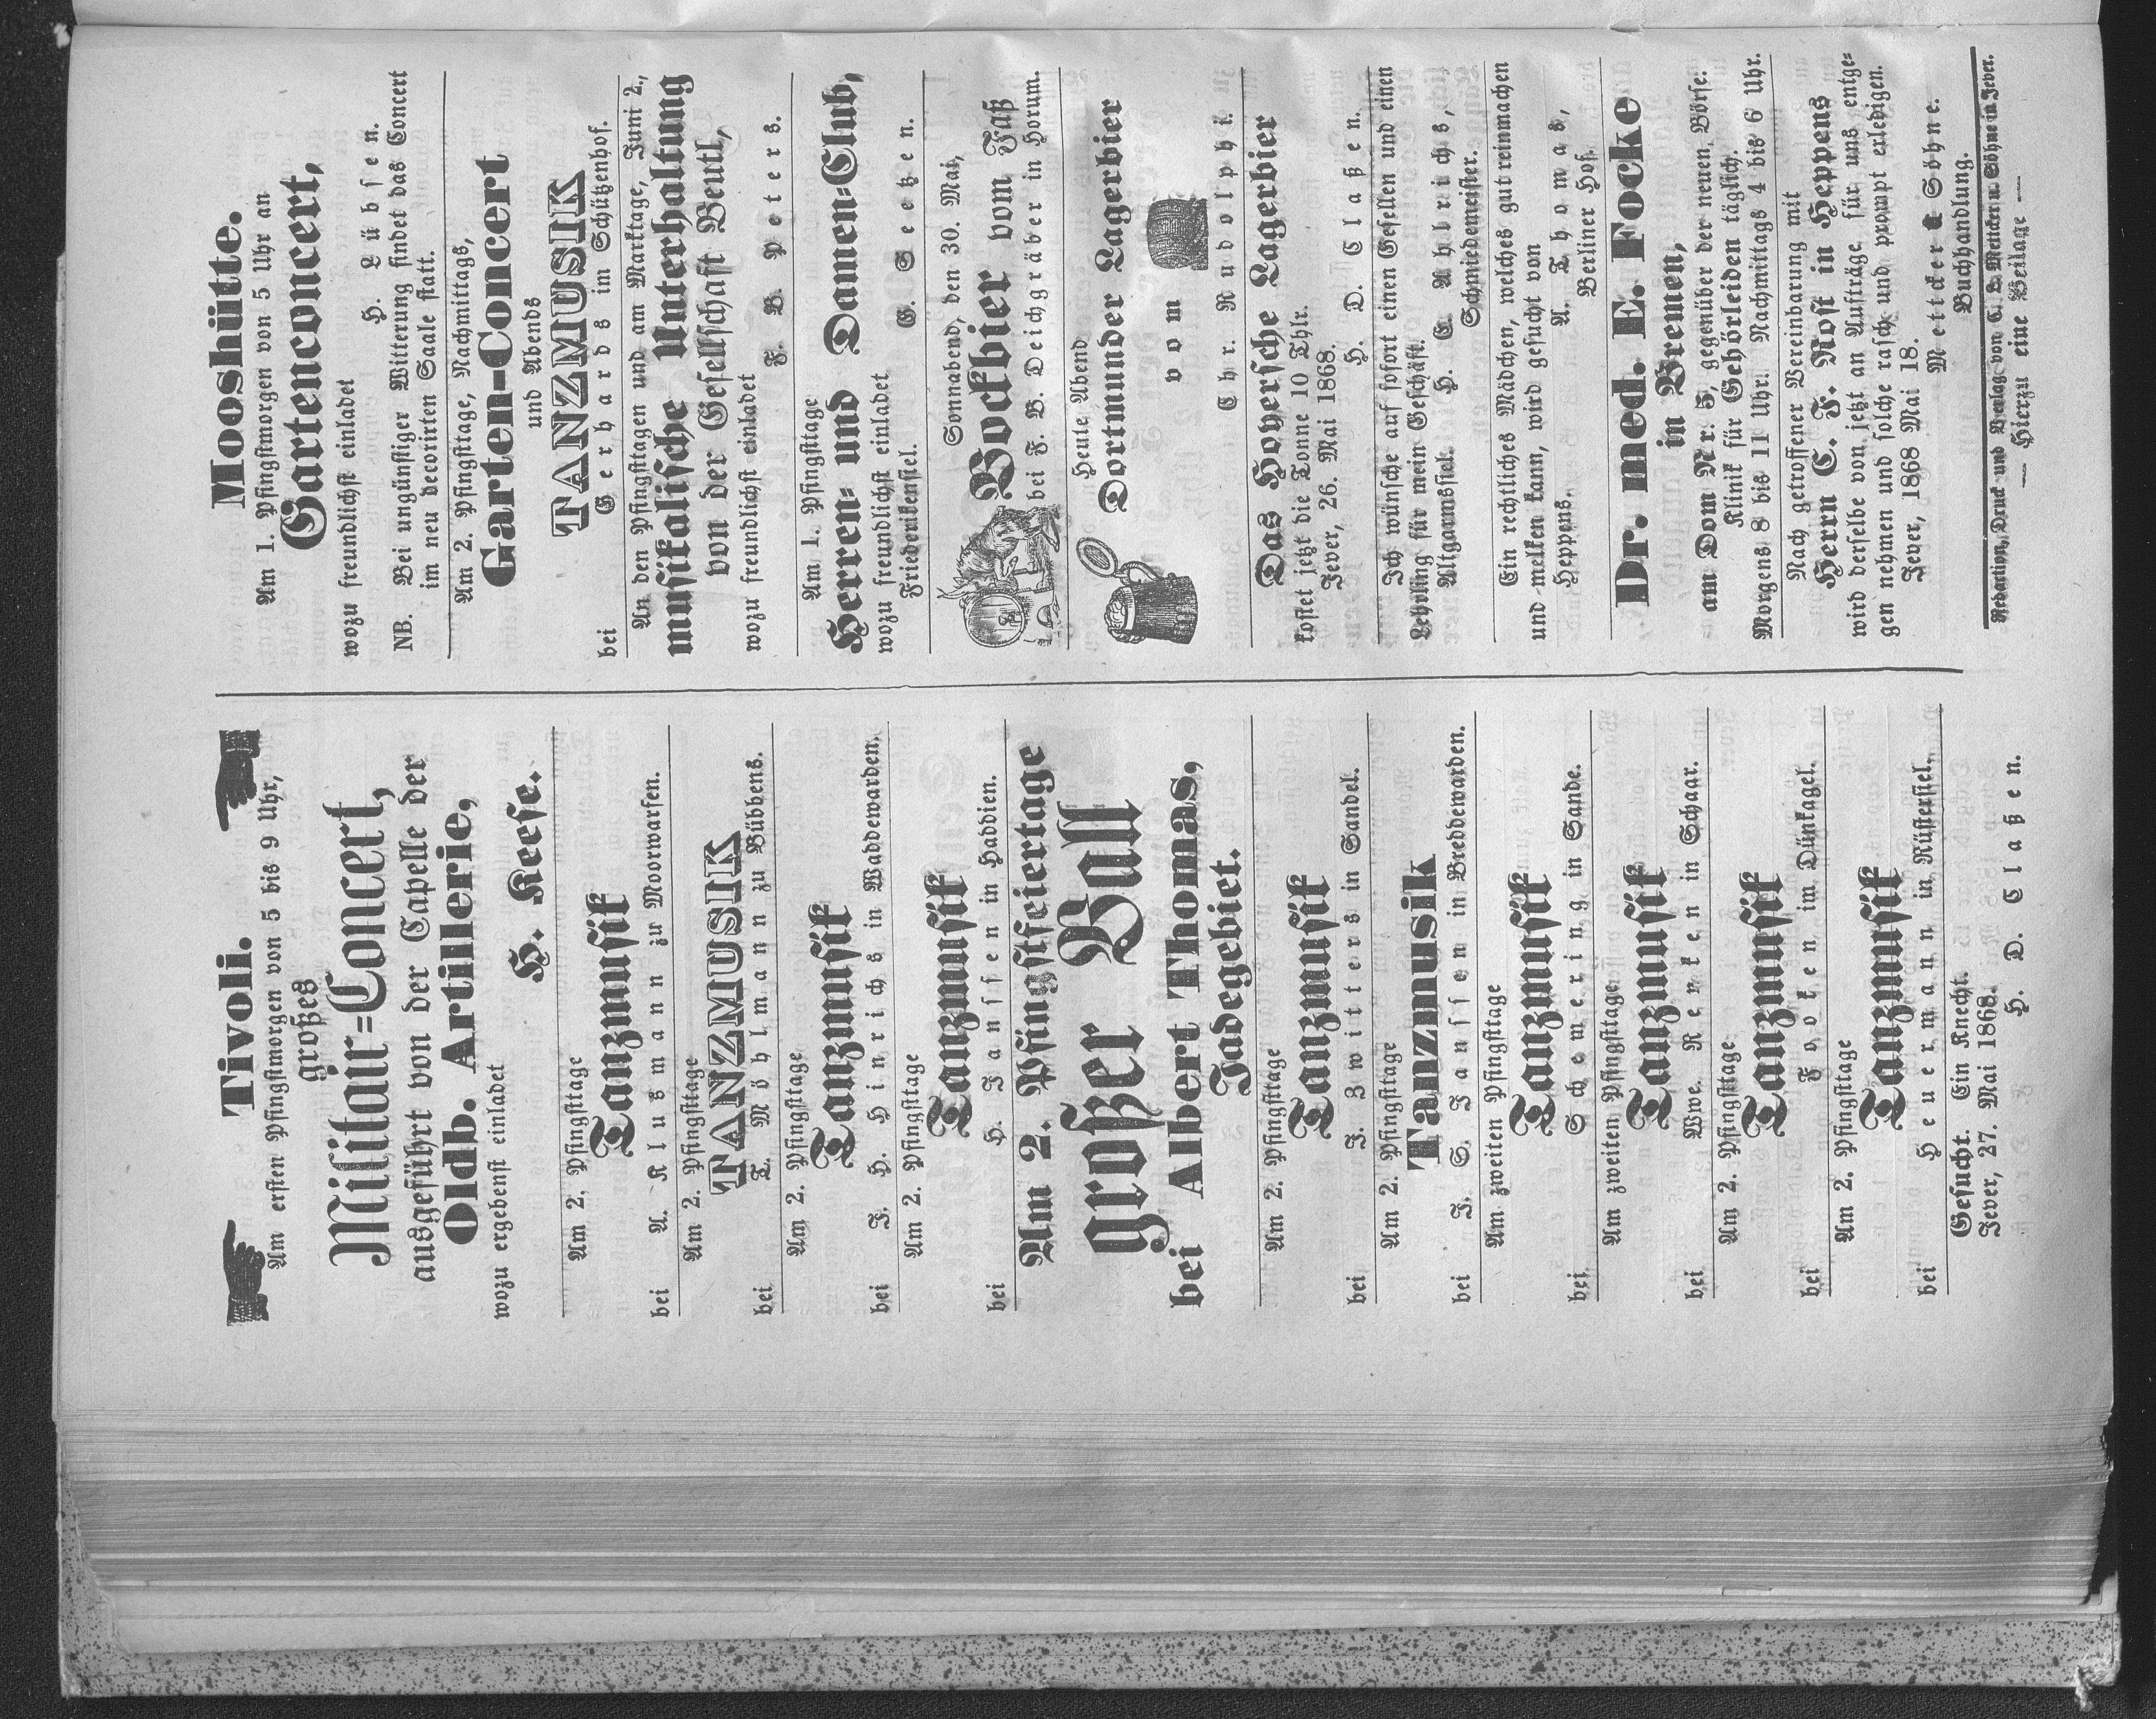 Tivoli.
Am ersten Pfingstmorgen von 5 bis 9 Uhr,
großes
Militair=Concert,
ausgeführt von der Capelle der
Oldb. Artillerie,
wozu ergebenst einladet
H. Keese.
Am 2. Pfingsttage
Tanzmusik
bei A. Klusmann zu Moorwarfen.
Am 2. Pfingsttage
TANZMUSIK
bei T. Möhlmann zu Bübbens.
Am 2. Pfingsttage
Tanzmusik
bei J. H. Hinrichs in Waddewarden.
Am 2. Pfingsttage
Tanzmusik
bei H. Janssen in Haddien.
Am 2. Pfingstfeiertage
großer Ball
bei Albert Thomas,
Jadegebiet.
Am 2. Pfingsttage
Tanzmusik
bei J. Zwitters in Sandel.
Am 2. Pfingsttage
Tanzmusik
bei J. S. Janssen in Breddewarden.
Am zweiten Pfingsttage
Tanzmusik
bei Schemering in Sande.
Am zweiten Pfingsttage
Tanzmusik
bei Wwe. Renken in Schaar.
Am 2. Pfingsttage
Tanzmusik
bei Foken im Dünkagel.
Am 2. Pfingsttage
Tanzmusik
bei Heuermann in Rüstersiel.
Gesucht. Ein Knecht.
Jever, 27. Mai 1868.
H. D. Claßen.
Mooshütte.
Am 1. Pfingstmorgen von 5 Uhr an
Gartenconcert,
wozu freundlichst einladet
H. Lübsen.
NB. Bei ungünstiger Witterung findet das Concert
im neu decorirten Saale statt.
Am 2. Pfingsttage, Nachmittags,
Garten-Concert
und Abends
TANZMUSIK
bei Gerhards im Schützenhof.
An den Pfingsttagen und am Marktage, Juni 2.,
musikalische Unterhaltung
von der Gesellschaft Beutl,
wozu freundlichst einladet
F. B. Peters.
Am 1. Pfingsttage
Herren= und Damen=Club,
wozu freundlichst einladet
Friederikensiel. G. Seetzen.
Sonnabend, den 30. Mai,
Bockbier vom Faß
bei F. B. Deichgräber in Horum.
Heute Abend
Dortmunder Lagerbier
vom
Chr. Rudolphi.
Das Hoyersche Lagerbier
kostet jetzt die Tonne 10 Thlr.
Jever, 26. Mai 1868.
H. D. Claßen.
Ich wünsche auf sofort einen Gesellen und einen
Lehrling für mein Geschäft.
Altgarmssiel. H. E. Ahbrichs,
Schmiedemeister.
Ein rechtliches Mädchen, welches gut reinmachen
und melken kann, wird gesucht von
Heppens. A. Thomas,
Berliner Hof.
Dr. med. E. Focke
in Bremen,
am Dom Nr. 5, gegenüber der neuen Börse:
Klinik für Gehörleiden täglich.
Morgens 8 bis 11 Uhr. Nachmittags 4 bis 6 Uhr.
Nach getroffener Vereinbarung mit
Herrn C. F. Nost in Heppens
wird derselbe von jetzt an Aufträge für uns entge=
gen nehmen und solche rasch und prompt erledigen.
Jever, 1868 Mai 18.
Mettcker & Söhne.
Buchhandlung.
Redaction, Druck und Verlag von C. L. Mettcker u. Söhne in Jever.
— Hierzu eine Beilage —